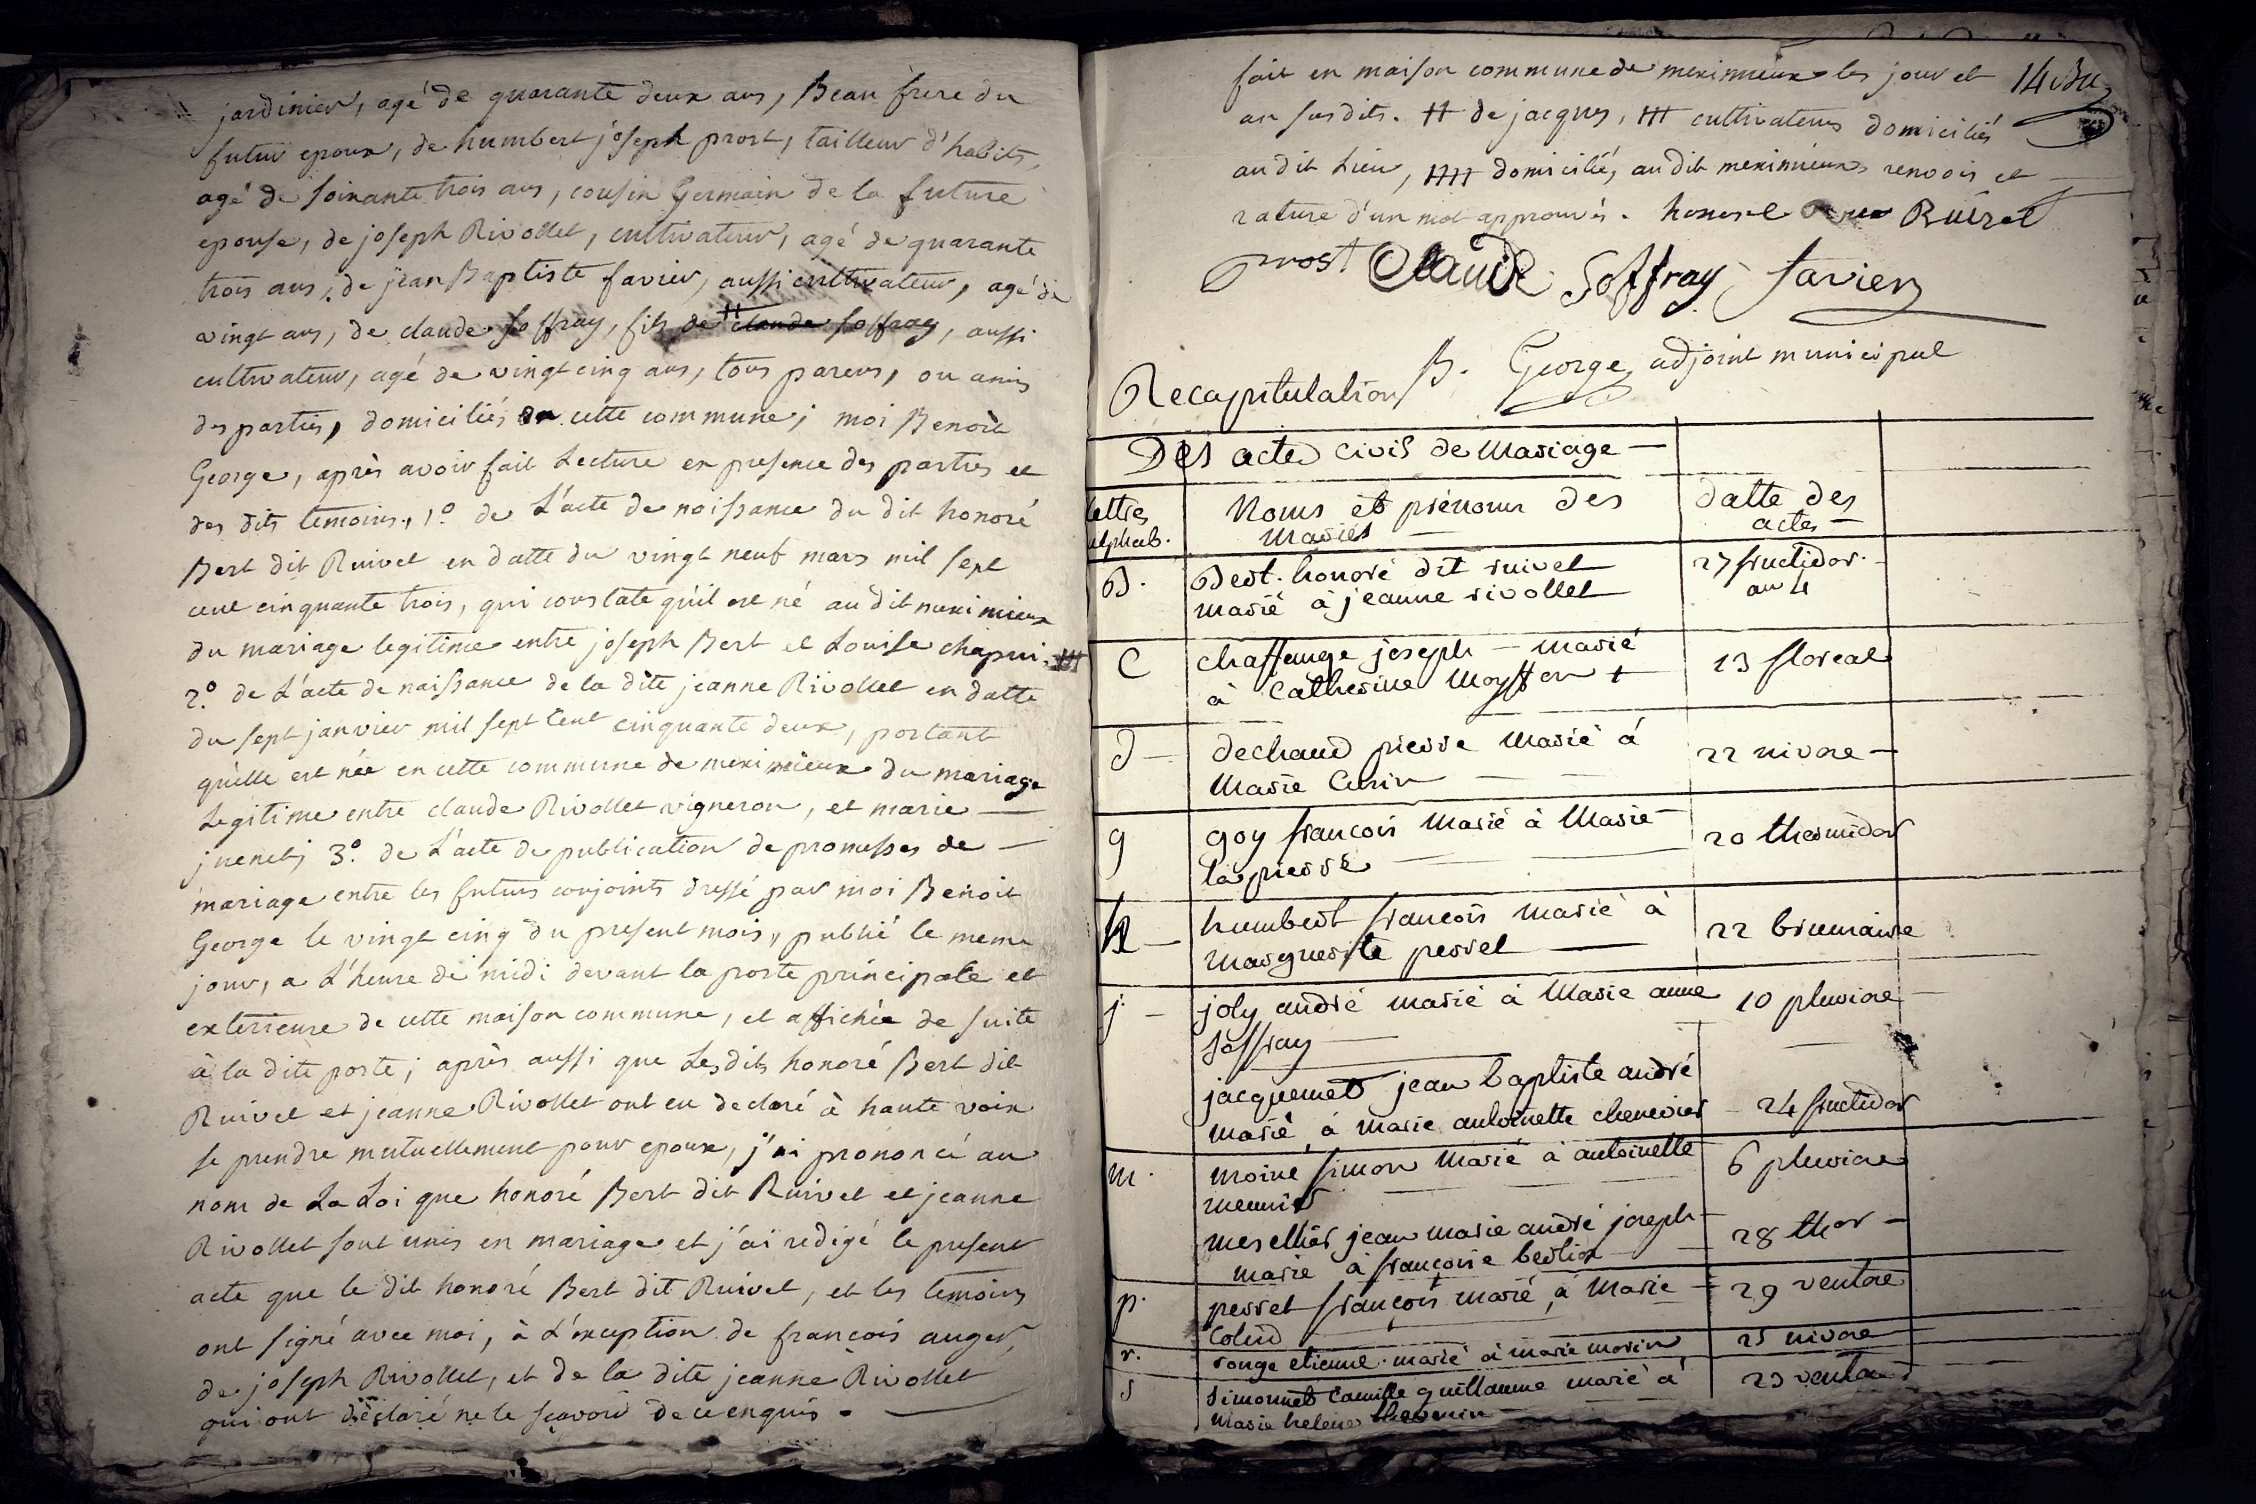 jardinier, agé de quarante deux ans, Beau frere du
futur epoux, de humbert joseph prost, tailleur d'habits,
agé de soixante trois ans, cousin Germain de la future
epouse, de joseph Rivollet, cultivateur, agé de quarante
trois ans, de jean Baptiste favier, aussi cultivateur, agé de
vingt ans, de claude soffray, fils de # claude soffray, aussi
cultivateur, agé de vingt cinq ans, tous parens, ou amis
des parties, domiciliés en cette commune; moi Benoit
George, après avoir fait Lecture en presence des parties et
des dits temoins, 1.° de L'acte de naissance du dit honoré
Bert dit Ruivet en datte du vingt neuf mars mil sept
cent cinquante trois, qui constate qu'il est né au dit meximieux
du mariage legitime entre joseph Bert et Louise chapui. ###
2.° de L'acte de naissance de la dite jeanne Rivollet en datte
du sept janvier mil sept cent cinquante deux, portant
qu'elle est née en cette commune de meximieux du mariage
Legitime entre claude Rivollet vigneron, et marie
juenet; 3.° de L'acte de publication de promesses de
mariage entre les futurs conjoints dressé par moi Benoit
George le vingt cinq du present mois, publié le meme
jour, a L'heure de midi devant la porte principale et
exterieure de cette maison commune, et affichée de suite
à la dite porte; après aussi que Lesdits honoré Bert dit
Ruivet et jeanne Rivollet ont eu declaré à haute voix
se prendre mutuellement pour epoux, j'ai prononcé au
nom de La Loi que honoré Bert dit Ruivet et jeanne
Rivollet sont unis en mariage et j'ai redigé le present
acte que le dit honoré Bert dit Ruivet, et les temoins
ont signé avec moi, à L'exception de françois auger,
de joseph Rivollet, et de la dite jeanne Rivollet
qui ont declaré ne le sçavoir de ce enquis.
fait en maison commune de meximieux les jour et
an susdits. # de jacques, ### cultivateurs domiciliés
au dit Lieu, #### domicilié, au dit meximieux renvois et
rature d'un mot approuvés. honoré Ruivet
prost Claude Soffray favier
B. George, adjoint municipal
Recapitulation
Des actes civils de Mariage
lettres alphab.
Noms et prénoms des mariés
datte des actes
B. Bert honoré dit ruivet 27 fructidor.
marié à jeanne rivollet an 4
C chaffange joseph marié 23 floreal
à Catherine Moyffon
d dechaud pierre marié à 22 nivose
Marie Curin
g goy francois marié à Marie 20 thermidor
la pierre
h humbert francois marié à 22 brumaire
marguerite perret
j joly andré marié à Marie anne 10 pluviose
soffray
jacquemet jean baptiste andré
marié à marie antoinette chenevier 24 fructidor
m. moine simon marié à antoinette 6 pluviose
meunier
jean marie andré joseph 28 thor
marié à françoise
p. perret françois marié à Marie 29 ventose
Colin
r. rouge etienne marié à marie morin 25 nivose
s simonnet Camille guillaume marié à 23 ventose
marie helene thevenin